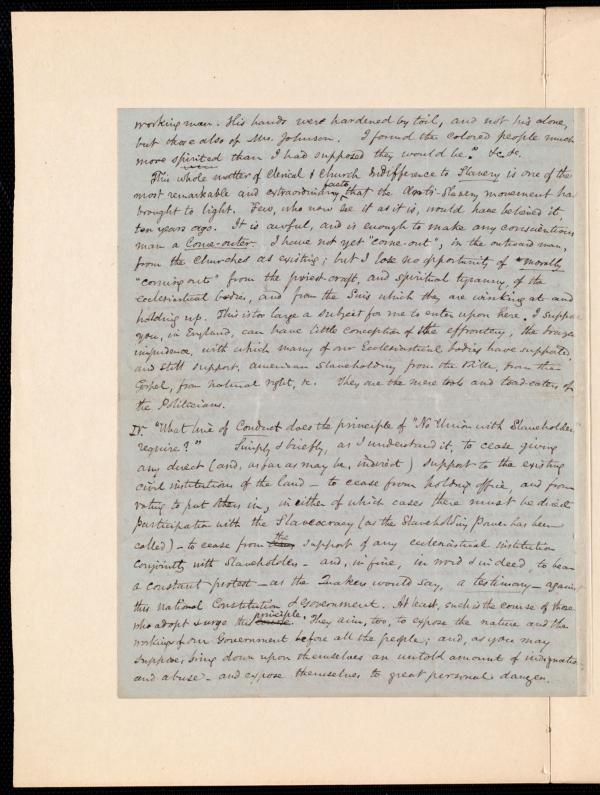 working man. His hands were hardened by toil, and not his alone,
but those also of Mrs. Johnson. I found the colored people much
more spirited than I had supposed they would be." &c. &c.
This whole matter of Clerical & Church Indifference to Slavery is one of the
most remarkable and extraordinary facts, that the Anti-Slavery movement has
brought to light. Few, who now see it as it is, would have believed it,
ten years ago. It is awful, and is enough to make any conscientious
man a Come-outer. I have not yet "come-out", in the outward man,
from the Churches as existing; but I lose no opportunity of morally
"coming out" from the priest-craft, and spiritual tyranny, of the
ecclesiastical bodies, and from the Sins which they are winking at and
holding up. This is too large a subject for me to enter upon here. I suppose
you, in England, can have little conception of the effrontery, the brazen
impudence, with which many of our Ecclesiastical bodies have supported,
and still support, American Slaveholding from the Bible, from the
Gospel, from natural right, &c. They are the mere tools and toad-eaters of
the Politicians.
IV "What line of Conduct does the principle of "No Union with Slaveholders"
require?" Simply & briefly, as I understand it, to cease giving
any direct (and, as far as may be, indirect) support to the existing
civil institutions of the land – to cease from holding office, and from
voting to put others in, in either of which cases there must be direct
participation with the Slaveocracy (as the Slaveholding Power has been
called) – to cease from the support of any ecclesiastical institution
conjointly with Slaveholders – and, in fine, in word & indeed, to bear
a constant protest – as the Quakers would say, a testimony – against
this national Constitution & Government. At least, such is the course of those
who adopt & urge this principle. They aim, too, to expose the nature and the
workings of our Government before all the people; and, as you may
suppose, bring down upon themselves an untold amount of indignation
and abuse – and expose themselves to great personal danger.